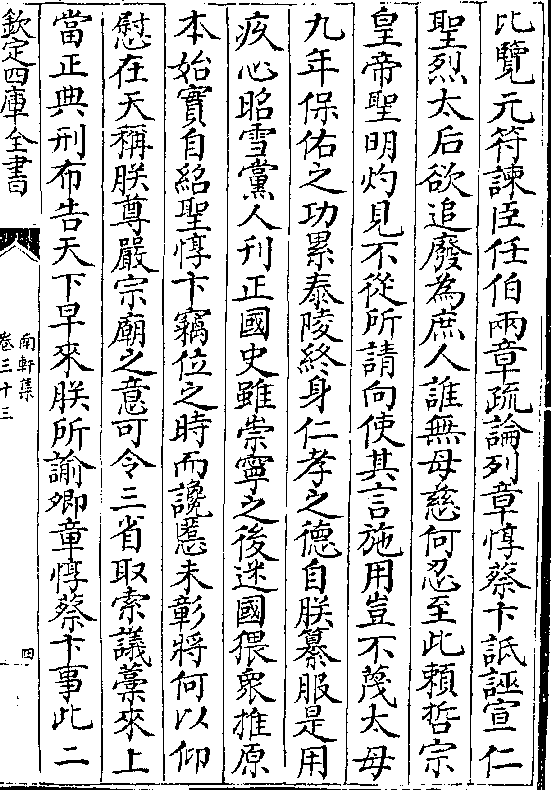 比覽元符諫臣任伯雨章疏論列章惇蔡卞詆誣宣仁
聖烈太后欲追廢為庶人誰無母慈何忍至此賴哲宗
皇帝聖明灼見不從所請向使其言施用豈不蔑太母
九年保佑之功累泰陵終身仁孝之德自朕纂服是用
疚心昭雪黨人刊正國史雖崇寧之後迷國猥衆推原
本始實自紹聖惇卞竊位之時而讒慝未彰將何以仰
慰在天稱朕尊嚴宗廟之意可令三省取索議藁來上
當正典刑布告天下早來朕所諭卿章惇蔡卞事此二
欽定四庫全書
南軒集
卷三十三
四